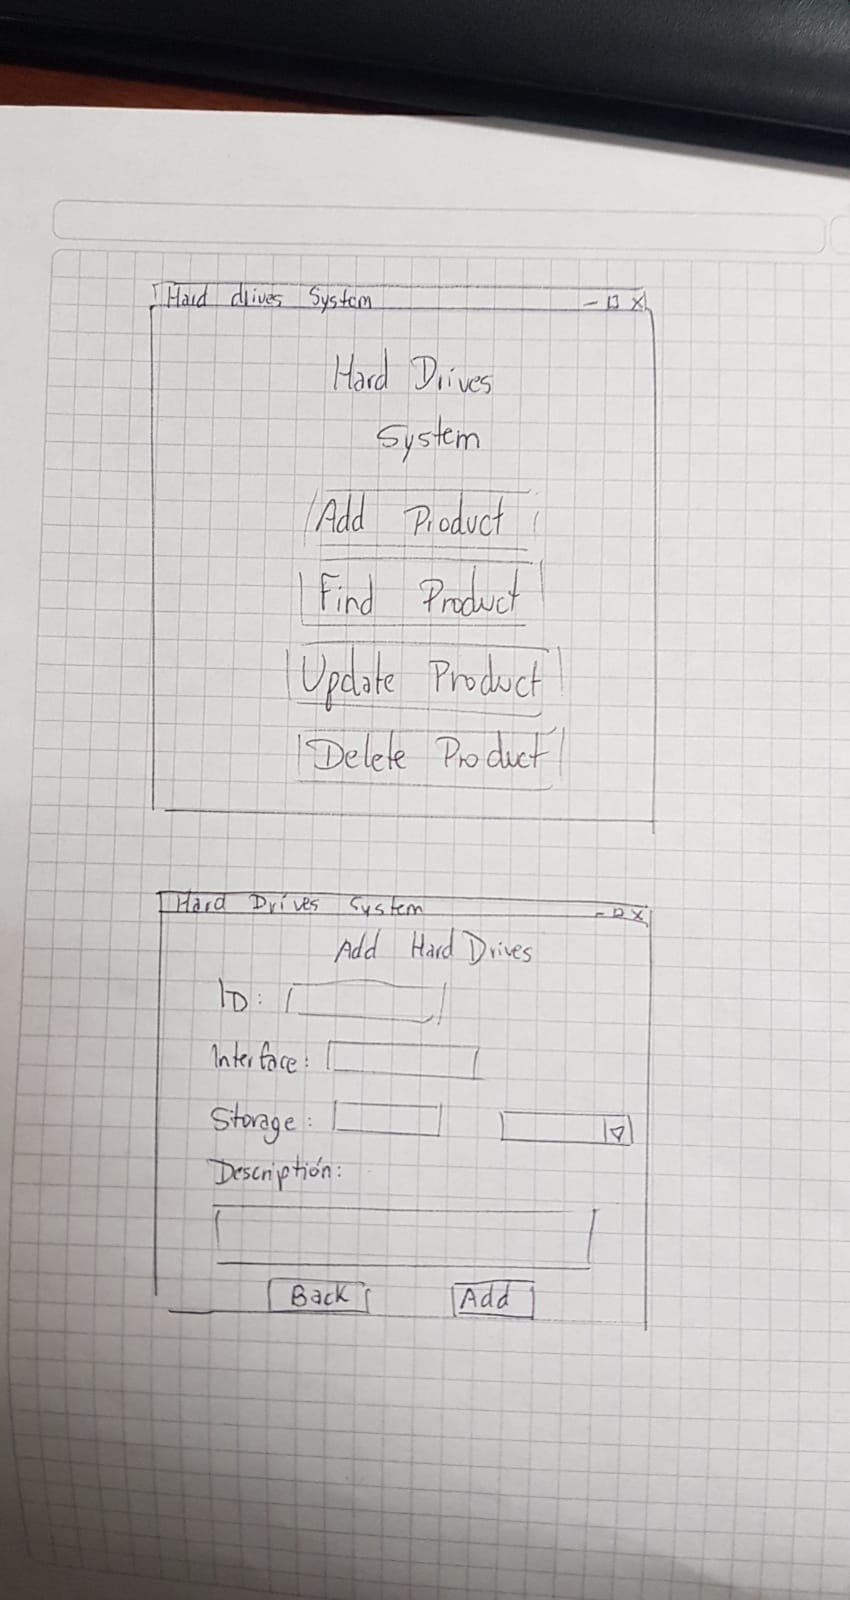 Hard drives System - □ X
Hard Drives
System
Add Product
Find Product
Update Product
Delete Product
Hard Drives System - □ X
Add Hard Drives
ID:
Interface:
Storage:
Descriptión:
Back Add